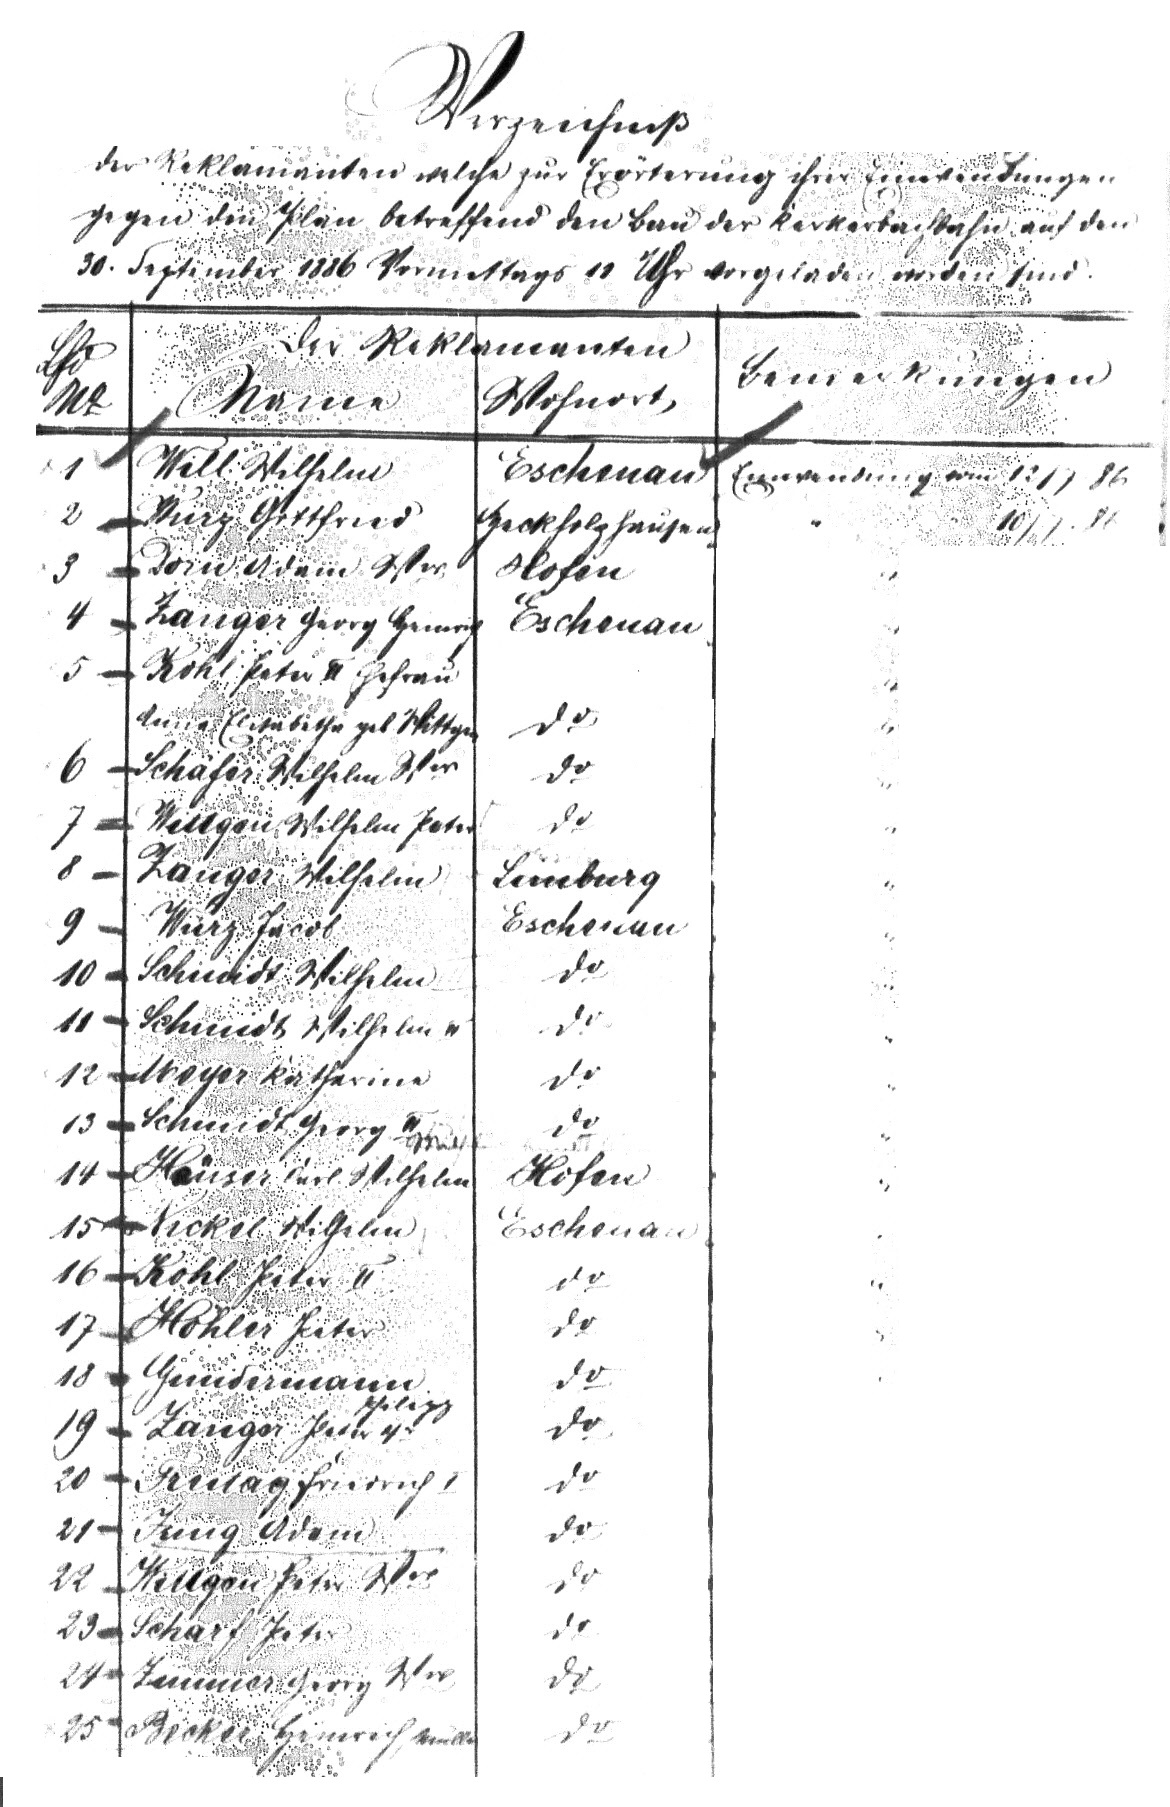 Verzeichniß
der Reklamanten welche zur Erörterung ihrer Einwendungen
gegen den Plan betreffend den Bau der Kerkerbachbahn auf den
30. September 1886 Vormittags 11 Uhr vorgeladen worden sind.
Lfd Der Reklamanten Bemerkungen
No Name Wohnort,
1 Will. Wilhelm Eschenau Einwendung vom 12/7 86
2 Wurz Gottfried Heckholzhausen " 10/7. 86
3 Dorn Adam Wwe Hofen "
4 Zanger Georg Heinrich Eschenau "
5 Kohl Peter II Ehefrau "
Anna Elisabetha geb Wittgen do "
6 Schäfer Wilhelm Wwe do "
7 Wittgen Wilhelm Peter do "
8 Zanger Wilhelm Limburg "
9 Wurz Jacob Eschenau "
10 Schmidt Wilhelm do "
11 Schmidt Wilhelm II do "
12 Meyer Katharine do "
13 Schmidt Georg II do "
14 Häuser Carl Wilhelm Hofen "
15 Nickel Wilhelm Eschenau "
16 Kohl Peter II do "
17 Höhler Peter do "
18 Gundermann do "
19 Zanger Peter Philipp do
20 Freitag Friedrich I do
21 Jung Adam do
22 Wittgen Peter Wwe do
23 Scharf Peter do
24 Zimmer Georg Wwe do
25 Becker Heinrich do